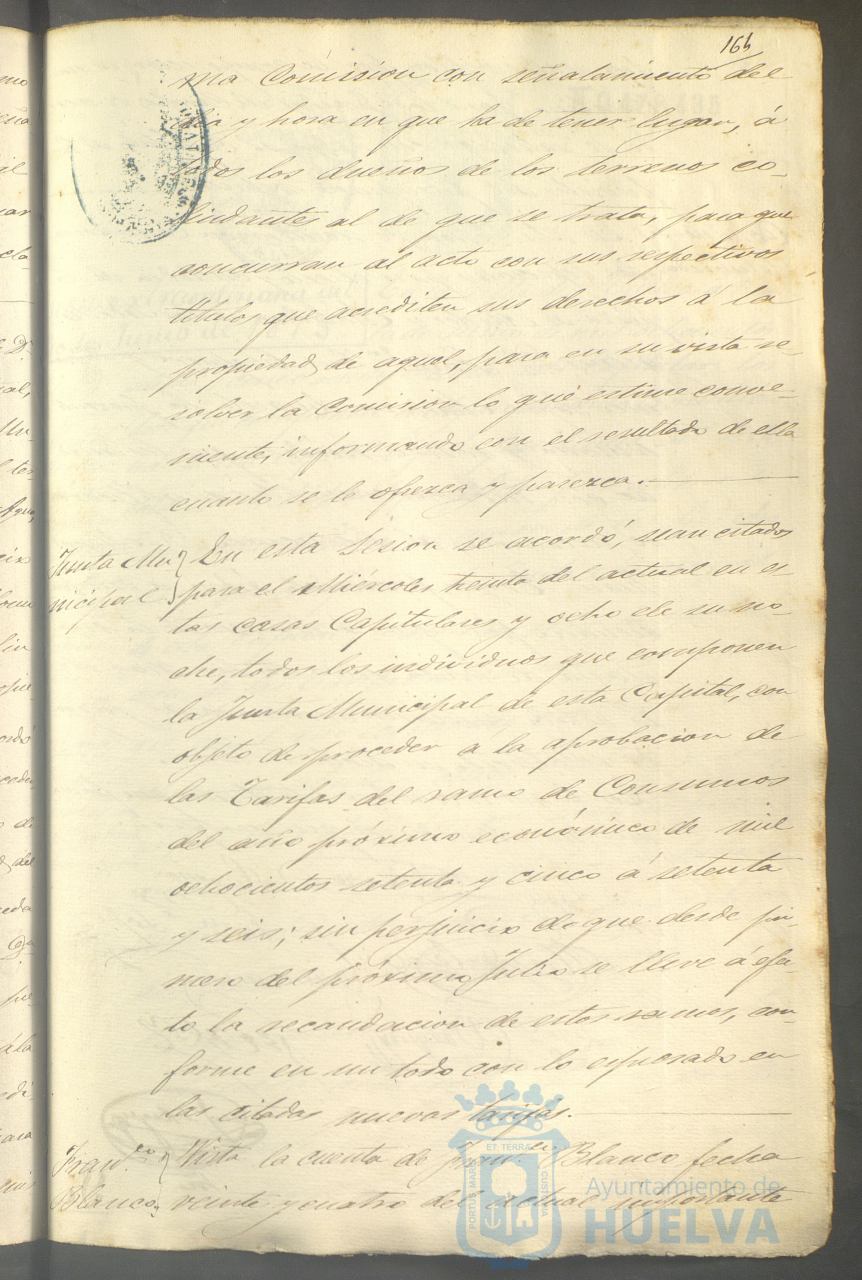 164
ma Comision con señalamiento del
dia y hora en que ha de tener lugar, á
todos los dueños de los terrenos co-
lindantes al de que se trata, para que
concurran al acto con sus respectivos
titulos que acrediten sus derechos á la
propiedad de aquel, para en su vista re-
solver la Comision lo que estime conve-
niente, informando con el resultado de ella
cuanto se le ofrezca y parezca.
Junta Mu
nicipal
En esta Sesion se acordó, sean citados
para el Miércoles treinta del actual en es-
tas casas Capitulares y ocho de su no-
che, todos los individuos que componen
la Junta Municipal de esta Capital, con
objeto de proceder á la aprobacion de
las Tarifas del ramo de Consumos
del año próximo económico de mil
ochocientos setenta y cinco á setenta
y seis; sin perjuicio de que desde pri-
mero del próximo Julio se lleve á efec-
to la recaudacion de estos ramos, con-
forme en un todo con lo espresado en
las citadas nuevas tarifas.
Fran.co
Blanco
Vista la cuenta de Fran.co Blanco fecha
veinte y cuatro del actual importante
PORTUS MARIS ET TERRAE CUSTODIA
Ayuntamiento de
HUELVA